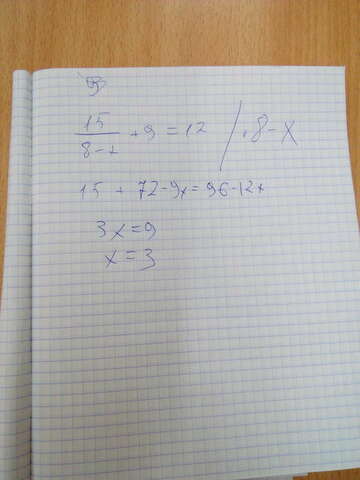 15/(8-x) + 9 = 12 / · 8-x
15 + 72-9x = 96-12x
3x=9
x=3